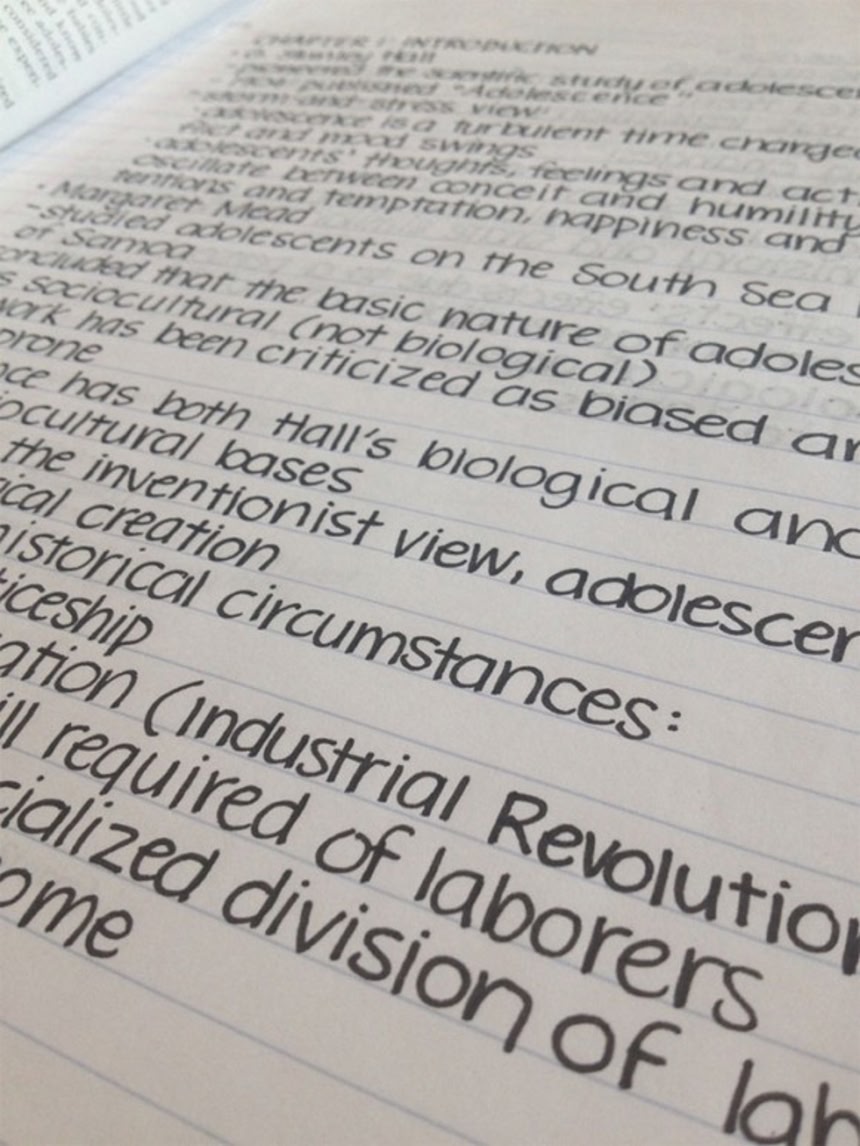 CHAPTER 1: INTRODUCTION
Stanley Hall
pioneered the scientific study of adolescen
published "Adolescence"
storm-and-stress view:
adolescence is a turbulent time charged
and mood swings
adolescents' thoughts, feelings and act
oscillate between conceit and humility
tentions and temptation, happiness and
• Margaret Mead
-studied adolescents on the South Sea
of Samoa
oncluded that the basic nature of adoles
s sociocultural (not biological)
work has been criticized as biased ar
prone
nce has both Hall's biological and
iocultural bases
the inventionist view, adolescen
ical creation
historical circumstances:
ticeship
ation (Industrial Revolution
ill required of laborers
cialized division of lab
ome